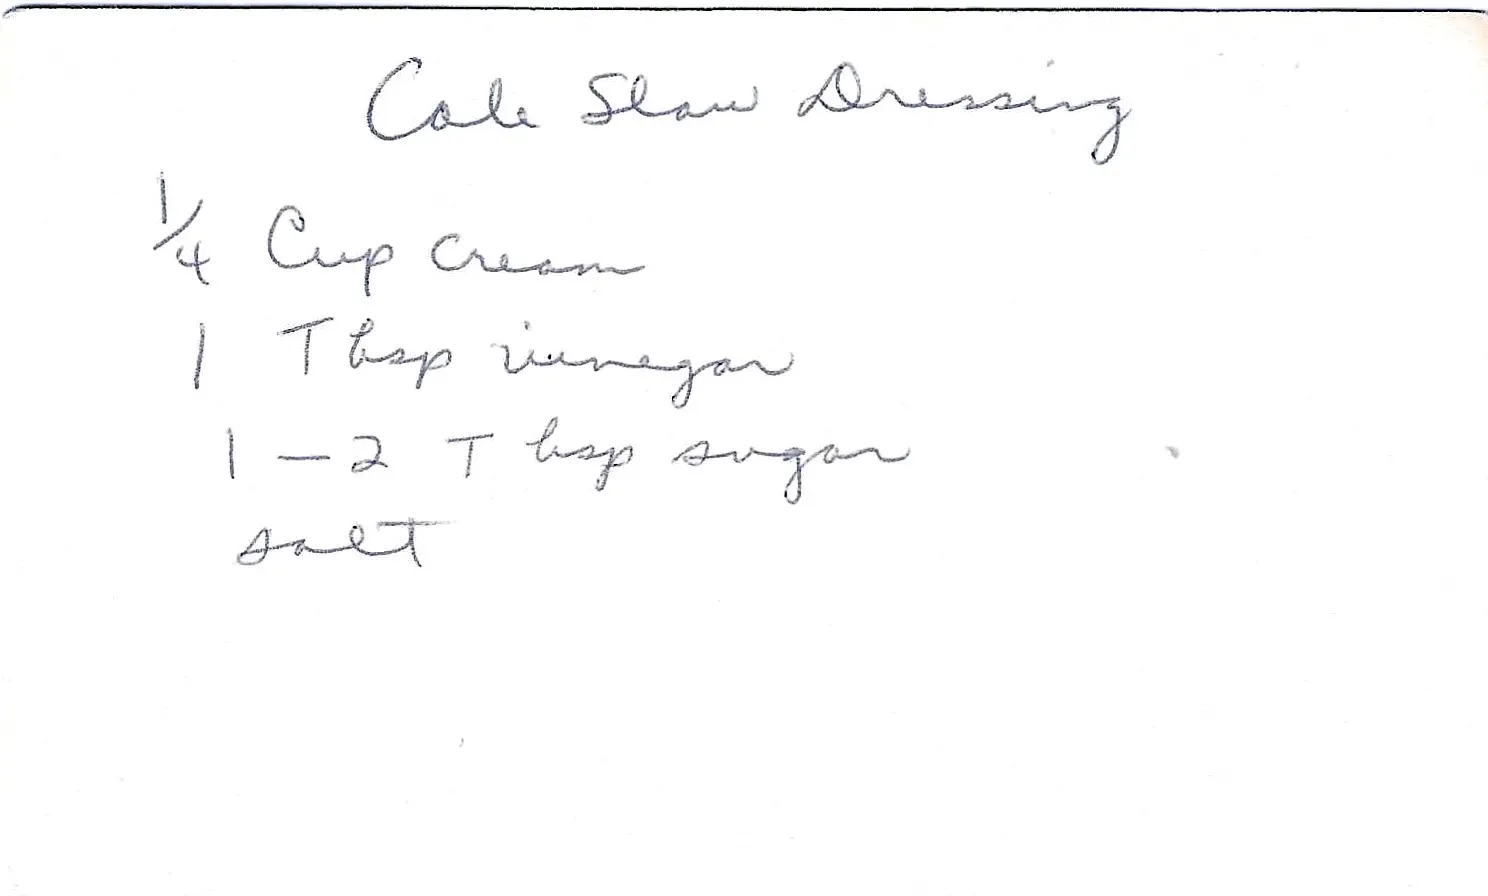 Cole Slaw Dressing
1/4 Cup cream
1 Tbsp vinegar
1 – 2 Tbsp sugar
salt